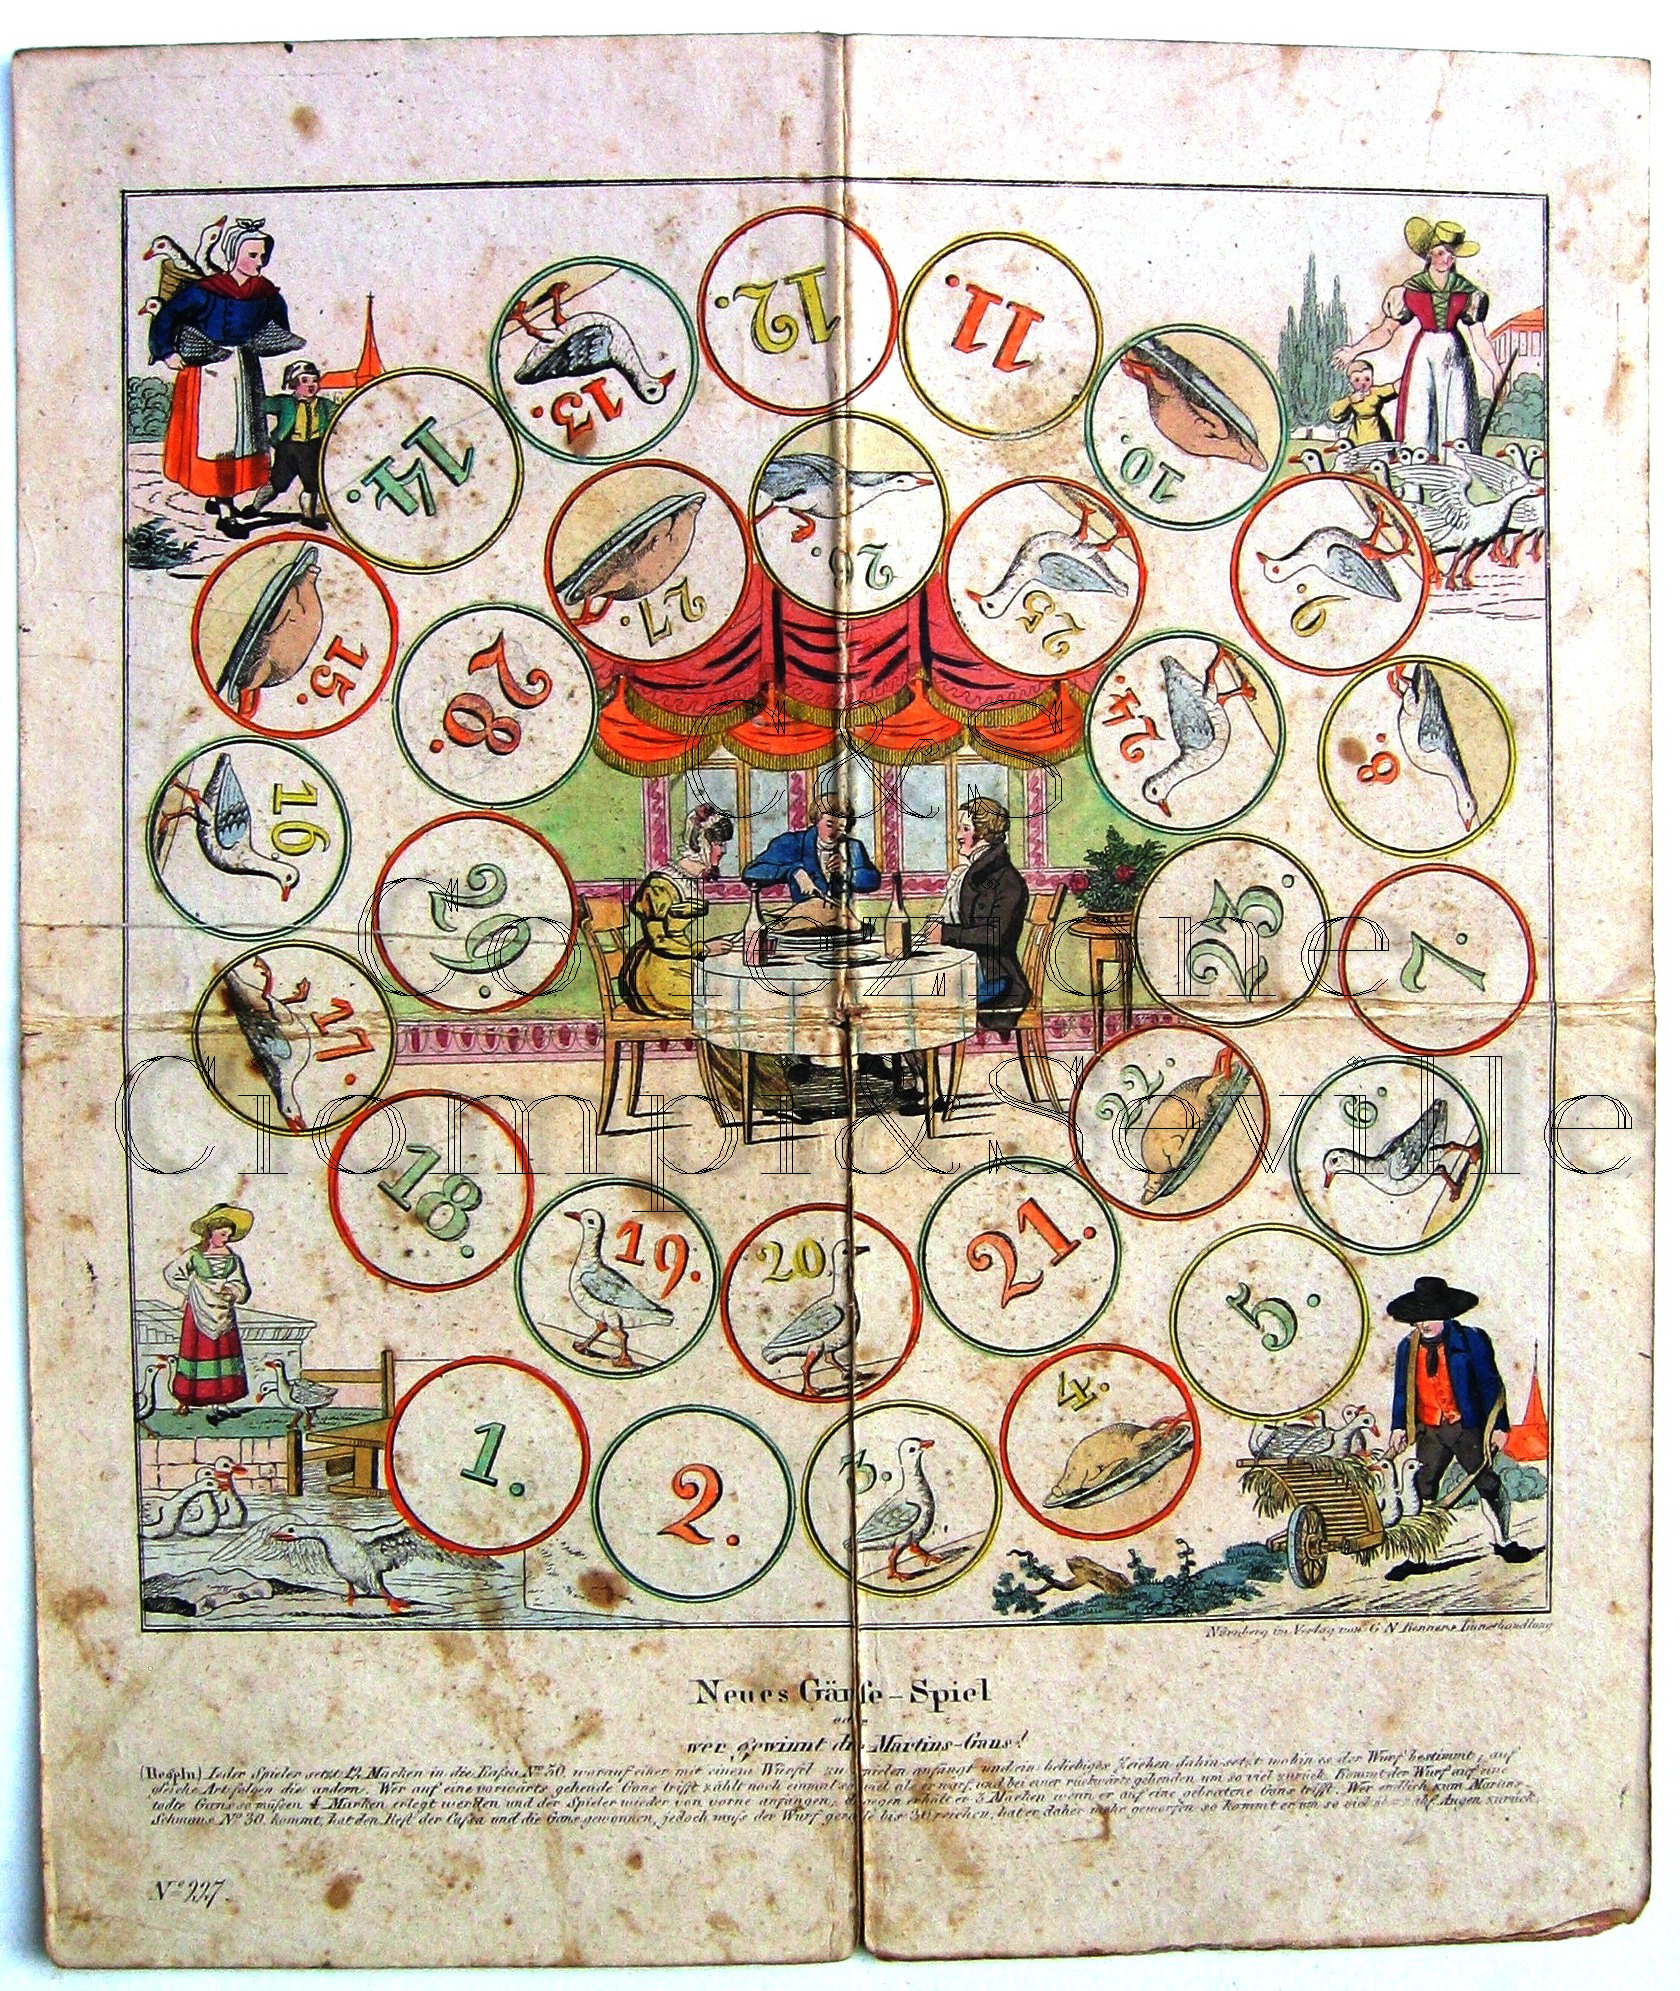 12.
11.
13.
14.
10.
26.
27.
25.
9.
15.
28.
24.
8.
C&S
16.
29.
23.
7.
Collezione
17.
Ciompi&Seville
22.
6.
18.
19.
20.
21.
5.
4.
1.
2.
3.
Nürnberg im Verlag von G N Renners Kunsthandlung
Neues Gänse-Spiel
oder
wer gewinnt die Martins-Gans!
(Regeln) Jeder Spieler setzt 12 Marken in die Kassa No 30, worauf einer mit einem Würfel zu spielen anfängt und ein beliebiges Zeichen dahin setzt wohin es der Wurf bestimmt, auf
gleiche Art folgen die andern. Wer auf eine vorwärts gehende Gans trifft zählt noch einmal so viel als er warf, und bei einer rückwärts gehenden um so viel zurück. Kommt der Wurf auf eine
todte Gans so müßen 4 Marken erlegt werden und der Spieler wieder von vorne anfangen, dagegen erhält er 3 Marken wenn er auf eine gebratene Gans trifft. Wer endlich zum Martins-
Schmaus No 30. kommt, hat den Rest der Cassa und die Gans gewonnen, jedoch muß der Wurf gerade bis 30 reichen, hat er daher mehr geworfen so kommt er um so viel Augen zurück.
No 227.